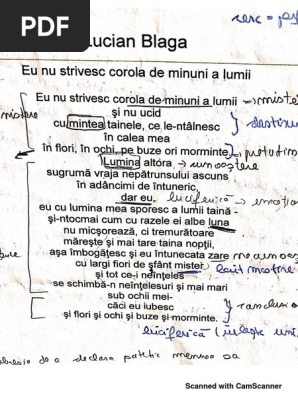 PDF
Lucian Blaga
Eu nu strivesc corola de minuni a lumii
Eu nu strivesc corola de minuni a lumii
şi nu ucid
cu mintea tainele, ce le-ntâlnesc
în calea mea
în flori, în ochi, pe buze ori morminte.
Lumina altora
sugrumă vraja nepătrunsului ascuns
în adâncimi de întuneric,
dar eu, luciferică
eu cu lumina mea sporesc a lumii taină -
şi-ntocmai cum cu razele ei albe luna
nu micşorează, ci tremurătoare
măreşte şi mai tare taina nopţii,
aşa îmbogăţesc şi eu întunecata zare
cu largi fiori de sfânt mister
şi tot ce-i neînţeles
se schimbă-n neînţelesuri şi mai mari
sub ochii mei-
căci eu iubesc
şi flori şi ochi şi buze şi morminte.
luciferică
a declara patetic
Scanned with CamScanner